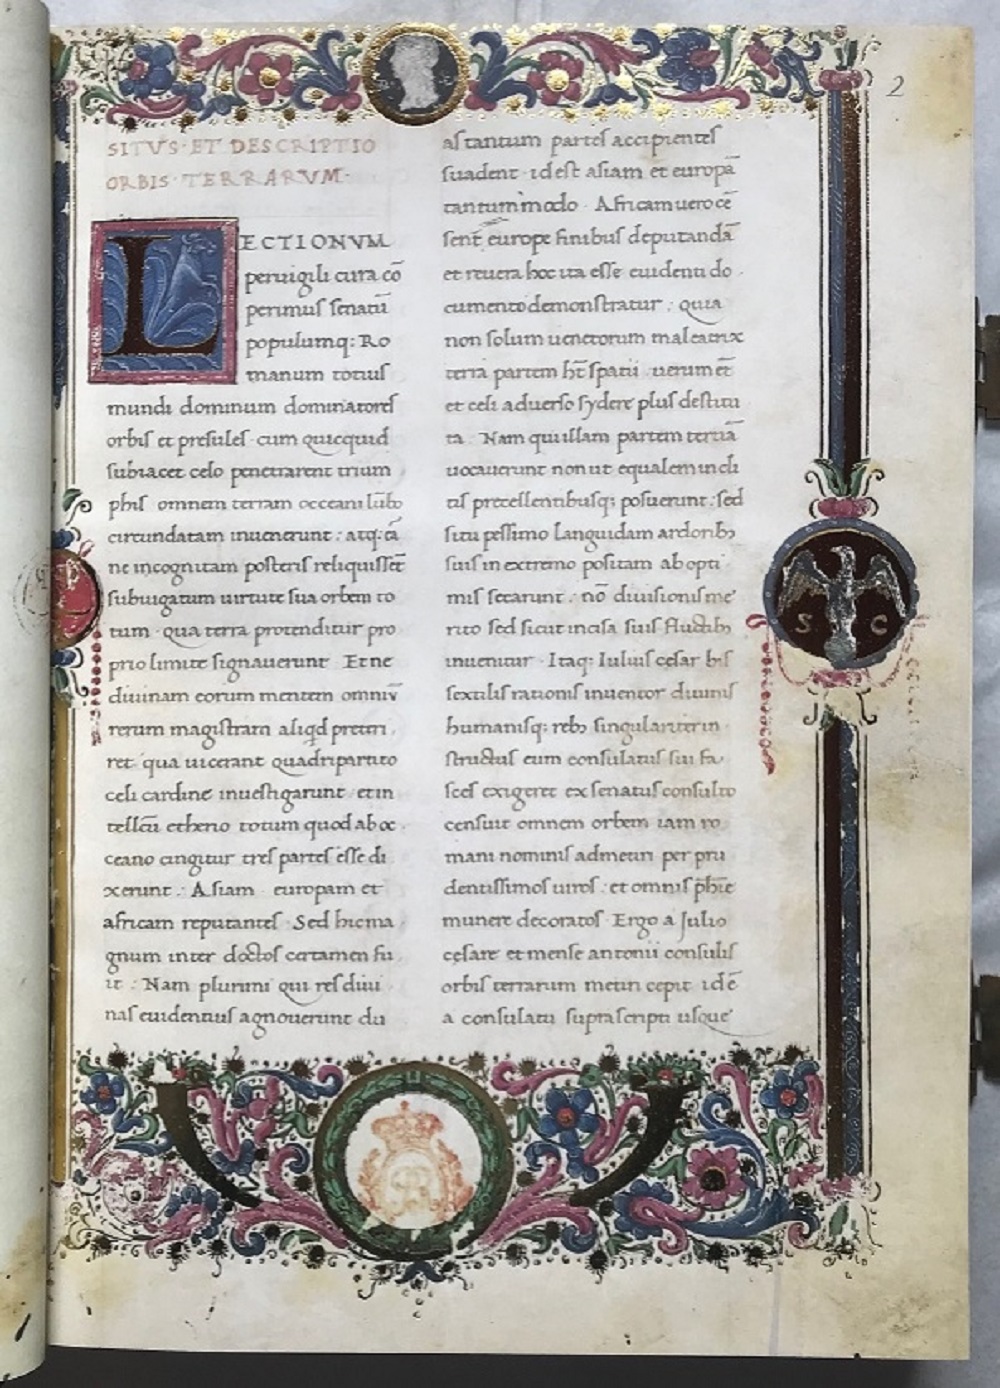 2
SITVS·ET DESCRIPTIO
ORBIS·TERRARVM·
LECTIONVM
peruigili cura cō
perimus senatū
populumq: Ro
manum totius
mundi dominum dominatores
orbis et presules· cum quicquid
subiacet celo penetrarent trium
phis omnem terram occeani lībo
circundatam inuenerunt: atq: cā
ne incognitam posteris reliquisset
subiugatum uirtute sua orbem to
tum· qua terra protenditur pro
prio limite signauerunt· Et ne
diuinam eorum mentem omniū
rerum magistram aliqd preteri
ret· qua uicerant quadripartito
celi cardine inuestigarunt· et in
tellcū etherio totum quod ab oc
ceano cingitur tres partes esse di
xerunt: Asiam· europam et
africam reputantes· Sed hic ma
gnum inter doctos certamen fu
it: Nam plurimi qui res diui
nas euidentius agnouerunt du
as tantum partes accipientes
suadent· id est asiam et europā
tantummodo· Africam uero cē
sent europe finibus deputandā
et reuera hoc ita esse euidenti do
cumento demonstratur: quia
non solum uenetorum maleatrix
terra partem hēt spatii uerum et
et celi aduerso sydere plus destitu
ta· Nam qui illam partem tertiā
uocauerunt non ut equalem incli
tis precellentibusq; posuerunt: sed
situ pessimo languidam ardorib;
suis in extremo positam ab opti
mis secarunt: nō diuisionis me
rito sed sicut incisa suis fluctib;
inuenitur· Itaq: Iulius cesar bis
sextilis rationis inuentor diuinis
humanisq: reb; singulariter in
structus cum consulatus sui fa
sces exigeret ex senatus consulto
censuit omnem orbem iam ro
mani nominis admetiri per pru
dentissimos uiros: et omnis phīe
munere decoratos· Ergo a Julio
cesare et mense antonii consulis
orbis terrarum metiri cepit· id ē
a consulatu suprascripti usque
S C